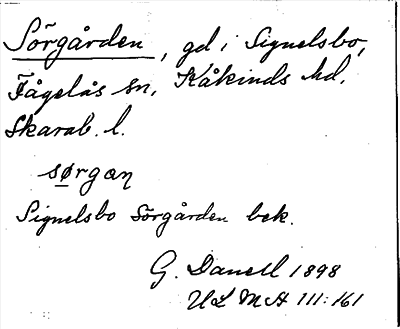 Sörgården, gd i Signelsbo,
Fågelås sn, Kåkinds hd,
Skarab. l.
sørgan
Signelsbo Sörgården bek.
G. Danell 1898
ULMA 111:161